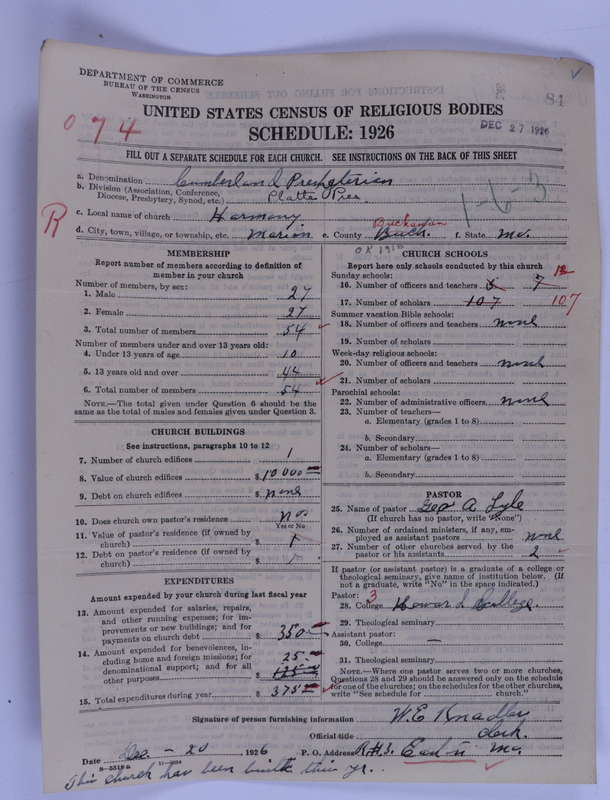 DEPARTMENT OF COMMERCE
BUREAU OF THE CENSUS
WASHINGTON
84
UNITED STATES CENSUS OF RELIGIOUS BODIES
SCHEDULE: 1926
DEC 27 1926
074
FILL OUT A SEPARATE SCHEDULE FOR EACH CHURCH. SEE INSTRUCTIONS ON THE BACK OF THIS SHEET
a. Denomination Cumberland Presbyterian
b. Division (Association, Conference, Diocese, Presbytery, Synod, etc.) Platte Pres.
1-6-3
R
c. Local name of church Harmony
d. City, town, village, or township, etc. Marion e. County Buch. Buchanan f. State Mo.
OK 1916
MEMBERSHIP
Report number of members according to definition of
member in your church
Number of members, by sex:
1. Male 27
2. Female 27
3. Total number of members 54
Number of members under and over 13 years old:
4. Under 13 years of age 10
5. 13 years old and over 44
6. Total number of members 54
NOTE.—The total given under Question 6 should be the
same as the total of males and females given under Question 3.
CHURCH BUILDINGS
See instructions, paragraphs 10 to 12
7. Number of church edifices 1
8. Value of church edifices $10000
9. Debt on church edifices $ none
10. Does church own pastor's residence? no
Yes or No
11. Value of pastor's residence (if owned by
church) $
12. Debt on pastor's residence (if owned by
church) $
EXPENDITURES
Amount expended by your church during last fiscal year
13. Amount expended for salaries, repairs,
and other running expenses; for im-
provements or new buildings; and for
payments on church debt $ 350
14. Amount expended for benevolences, in-
cluding home and foreign missions; for
denominational support; and for all
other purposes $ 25
15. Total expenditures during year $ 375
CHURCH SCHOOLS
Report here only schools conducted by this church
Sunday schools:
16. Number of officers and teachers 7 12
17. Number of scholars 107 107
Summer vacation Bible schools:
18. Number of officers and teachers none
19. Number of scholars
Week-day religious schools:
20. Number of officers and teachers none
21. Number of scholars
Parochial schools:
22. Number of administrative officers none
23. Number of teachers—
a. Elementary (grades 1 to 8)
b. Secondary
24. Number of scholars—
a. Elementary (grades 1 to 8)
b. Secondary
PASTOR
25. Name of pastor Geo A. Lyle
(If church has no pastor, write "None")
26. Number of ordained ministers, if any, em-
ployed as assistant pastors none
27. Number of other churches served by the
pastor or his assistants 2
If pastor (or assistant pastor) is a graduate of a college or
theological seminary, give name of institution below. (If
not a graduate, write "No" in the space indicated.)
Pastor: 3
28. College Howard College.
29. Theological seminary
Assistant pastor:
30. College —
31. Theological seminary
NOTE.—Where one pastor serves two or more churches,
Questions 28 and 29 should be answered only on the schedule
for one of the churches; on the schedules for the other churches,
write "See schedule for church."
Signature of person furnishing information W. E. Knadler
Official title clerk.
Date Dec. - 20, 1926 P. O. Address Mo.
8—5518a 11—9064
This church has been built this yr.